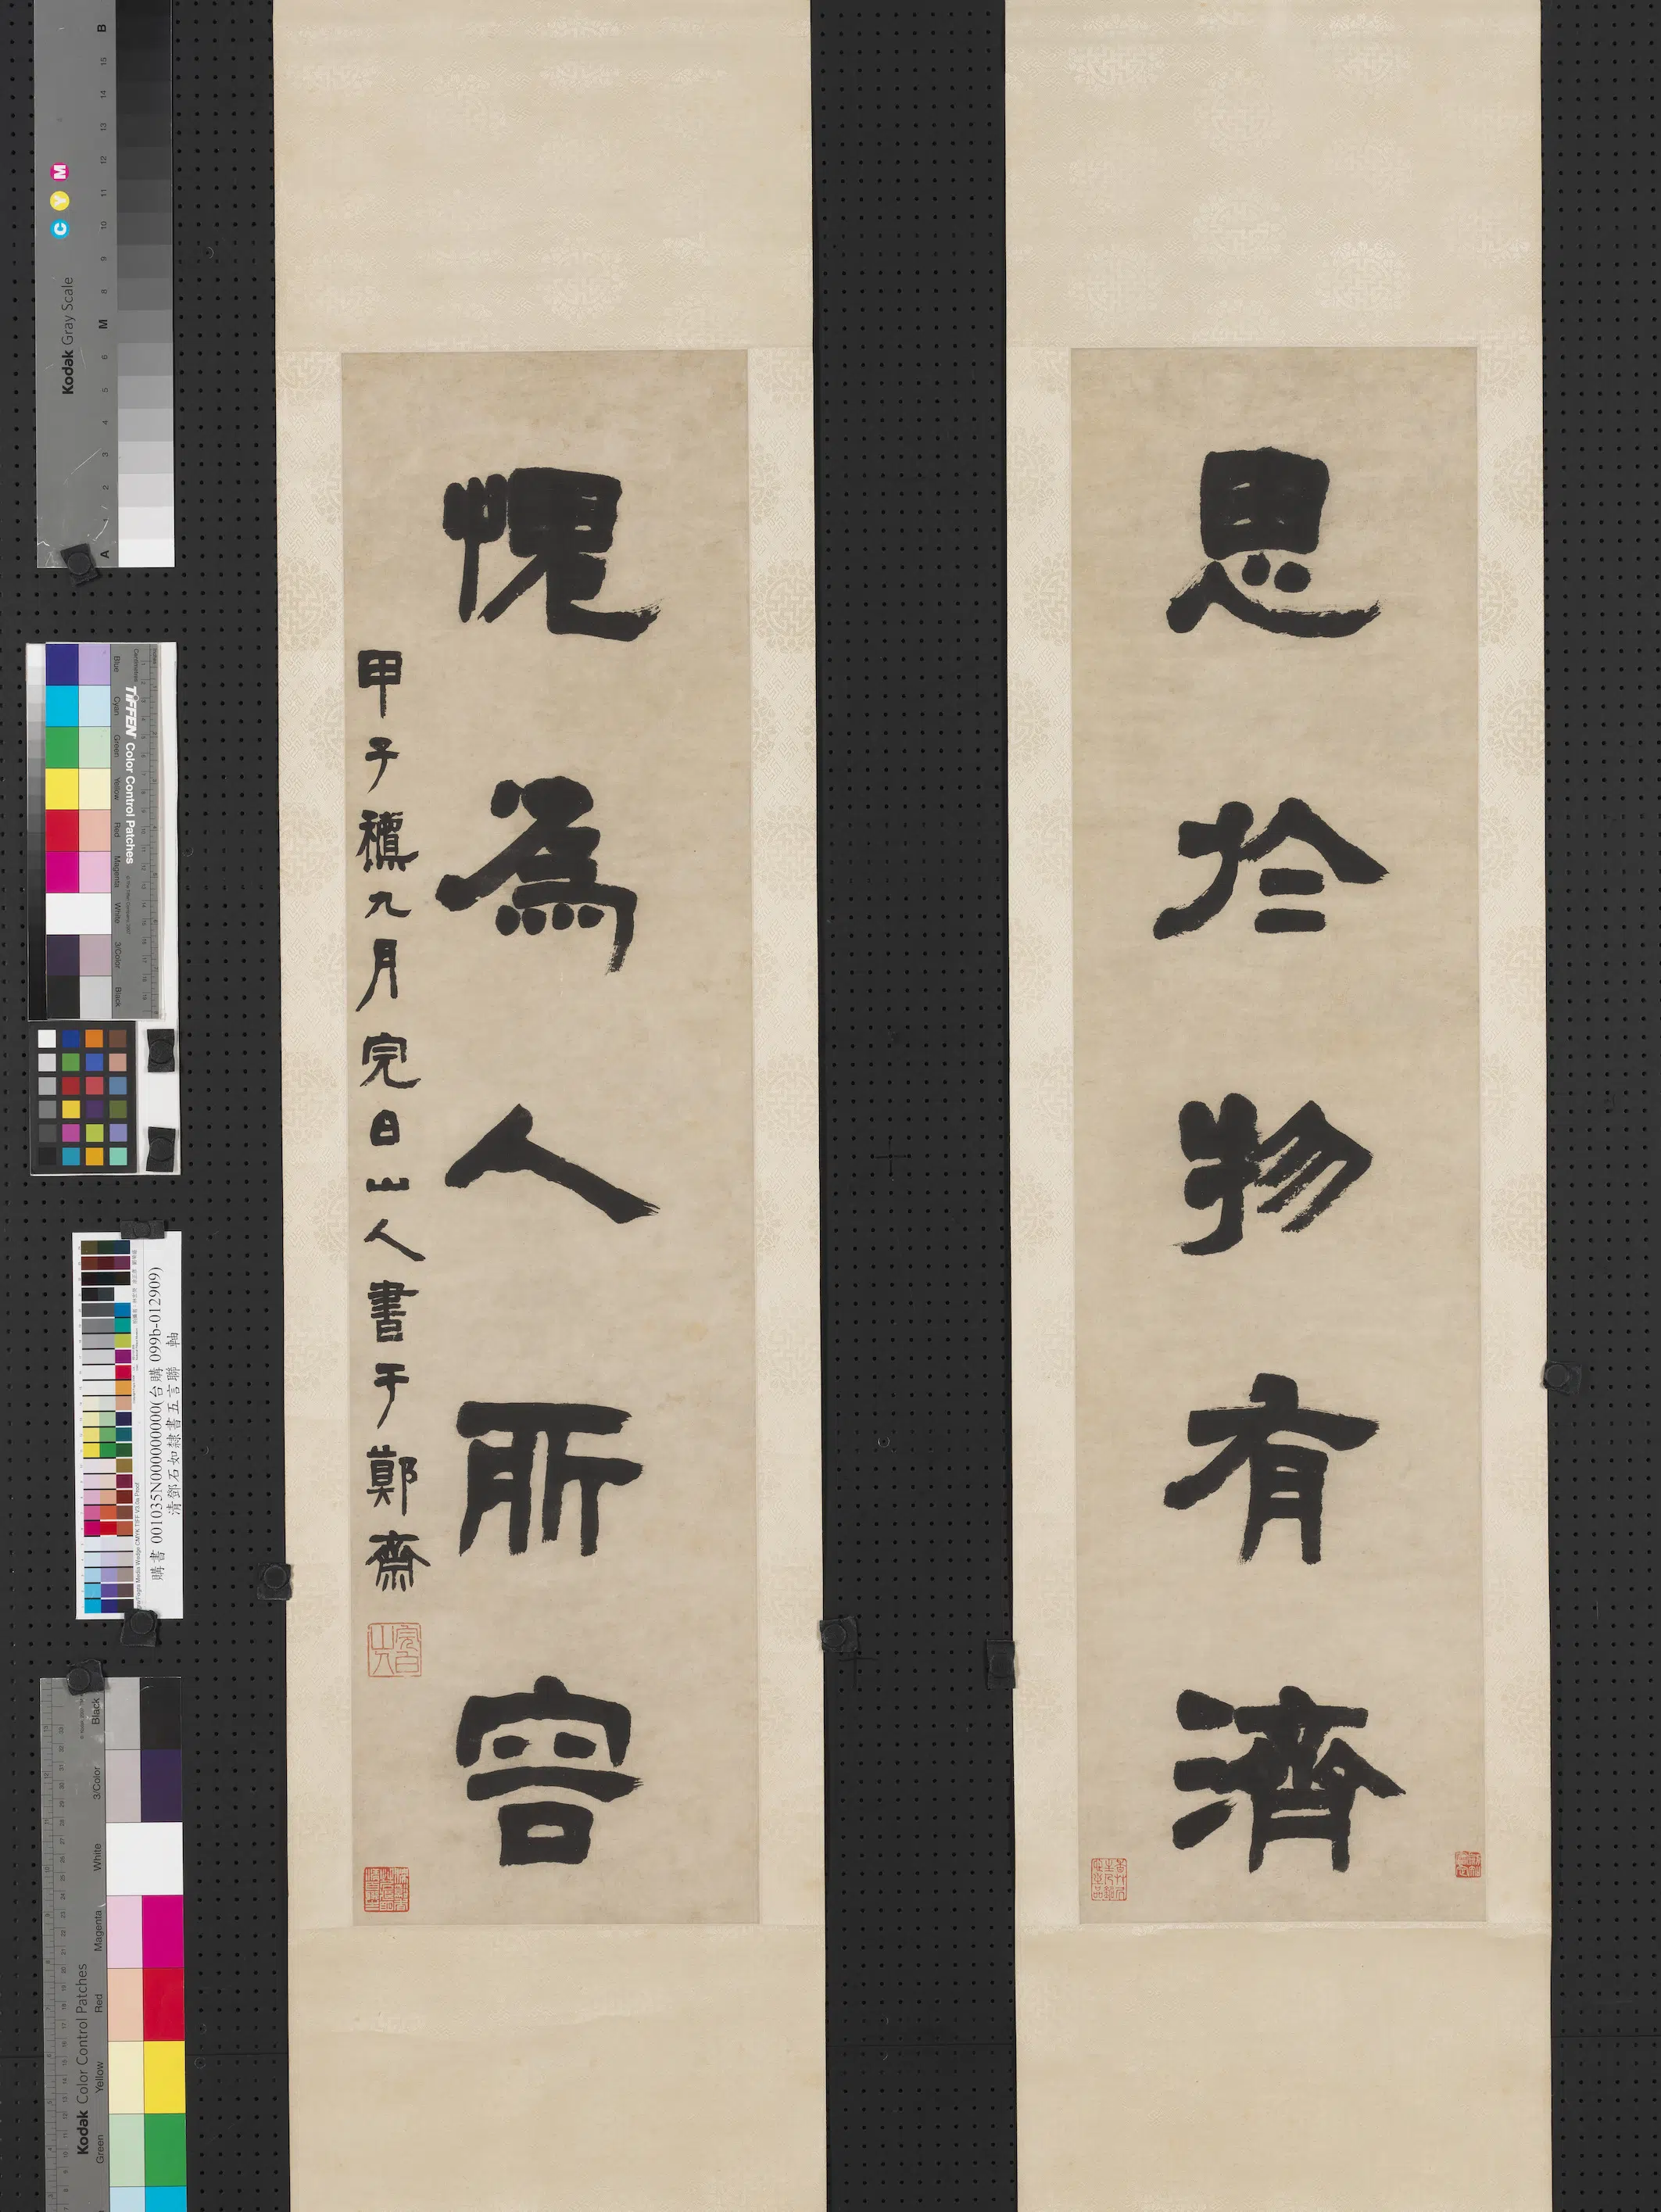 思扵物有濟
愧為人所容
甲子龝九月完白山人書于鄭齋
完白山人
Kodak Gray Scale
C Y M
A 1 2 3 4 5 6 M 8 9 10 11 12 13 14 15 B
TIFFEN Color Control Patches
Blue Cyan Green Yellow Red Magenta White 3/Color Black
購書 001035N000000000(台購 099b-012909)
清鄧石如隸書五言聯 軸
Kodak Color Control Patches
Green Yellow Red Magenta White 3/Color Black